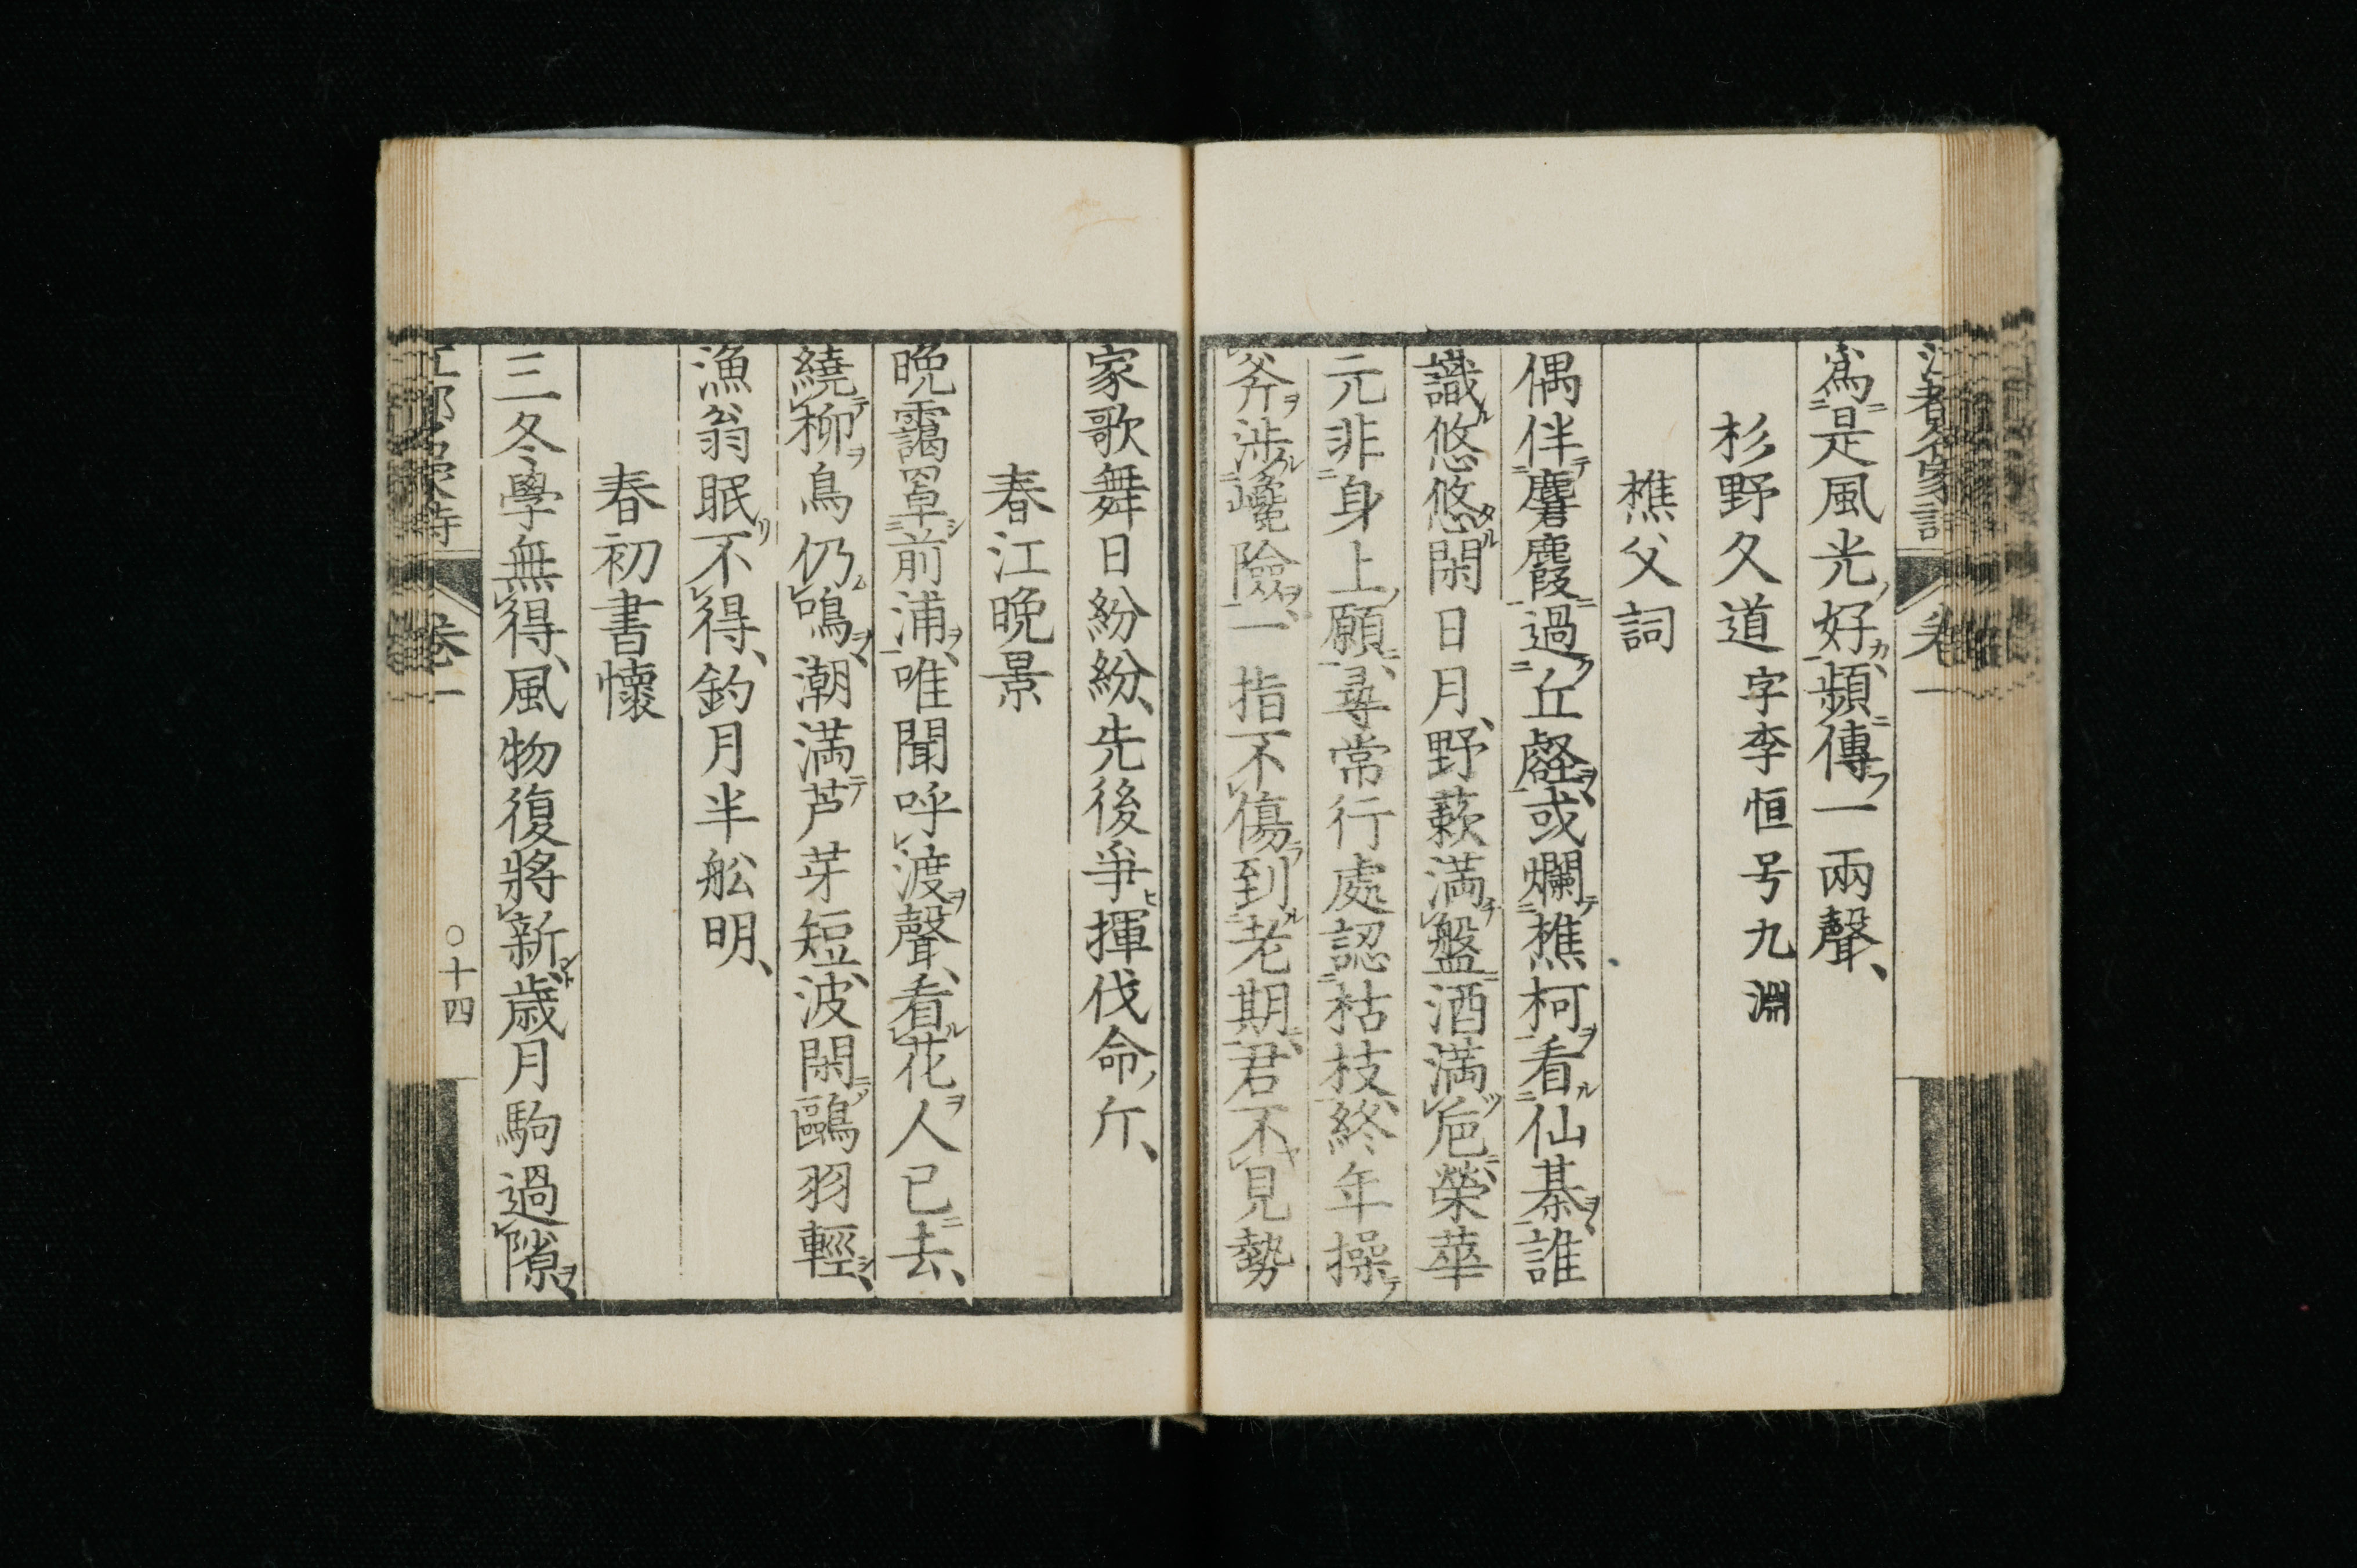 爲是風光好頻傳一兩聲
杉野久道 字李恒号九淵
樵父詞
偶伴麏麚過丘壑或爛樵柯看仙棊誰
識悠悠閑日月野蔌満盤酒満巵榮華
元非身上願尋常行處認枯枝終年操
斧渉巉險一指不傷到老期君不見勢
家歌舞日紛紛先後爭揮伐命斤
春江晩景
晩靄罩前浦唯聞呼渡聲看花人已去
繞柳鳥仍鳴潮満芦芽短波閑鷗羽輕
漁翁眠不得釣月半舩明
春初書懷
三冬學無得風物復將新歳月駒過隙
卷一
○十四